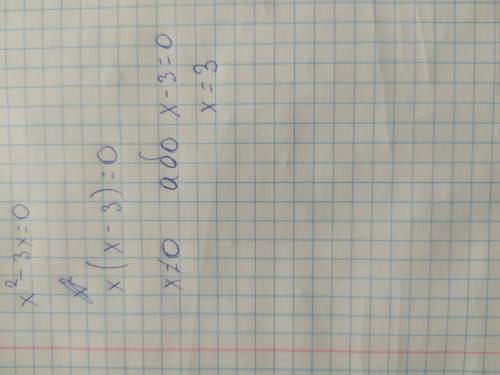 x²-3x=0
x(x-3)=0
x≠0 або x-3=0
x=3